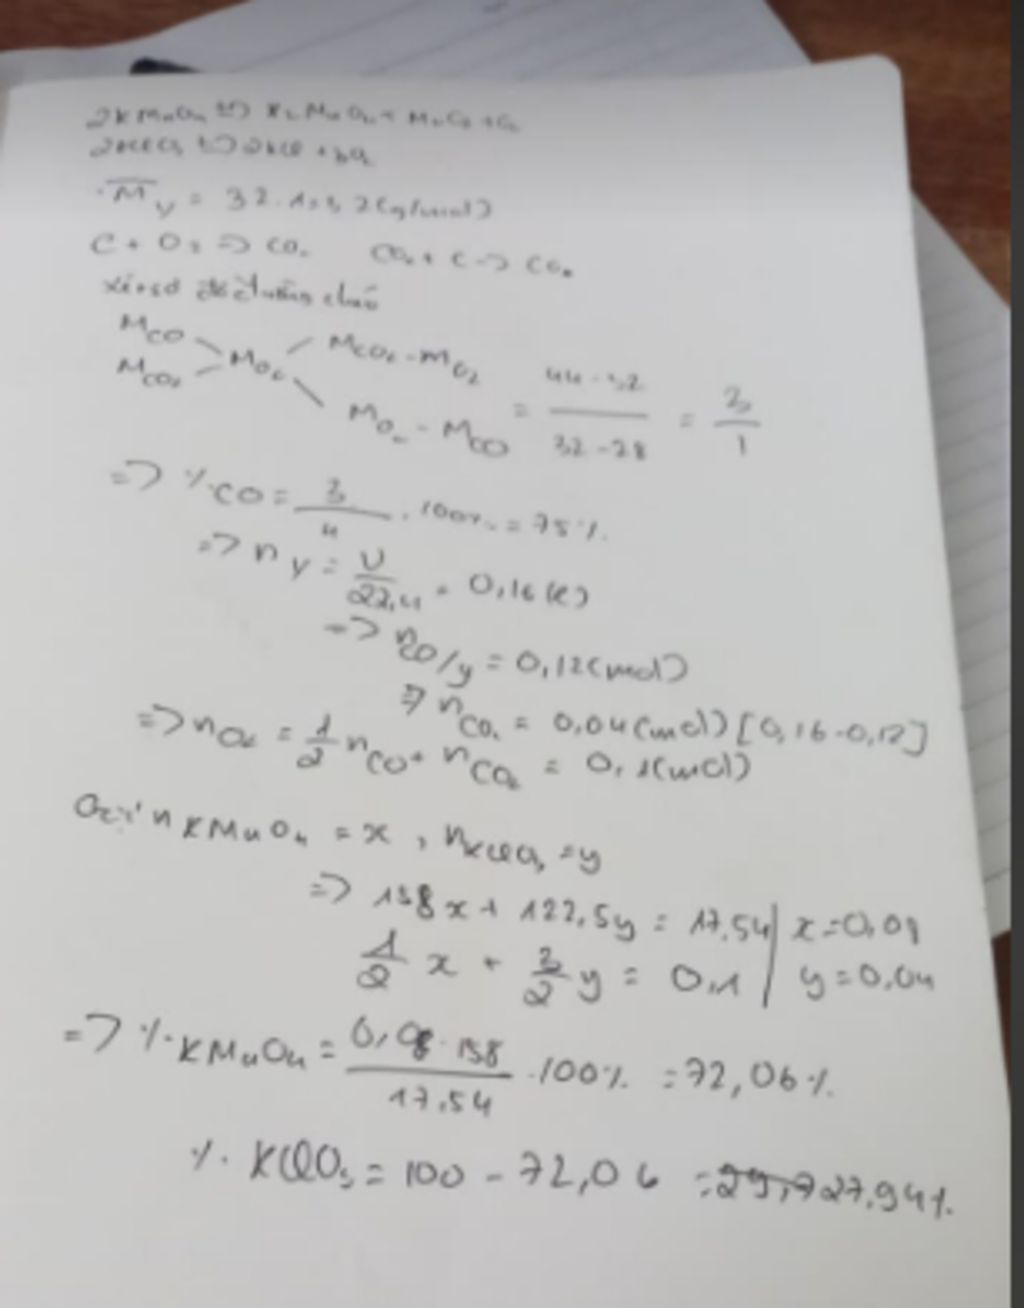 2KMnO₄ => K₂MnO₄ + MnO₂ + O₂
2KClO₃ => 2KCl + 3O₂
M̅y = 32.1 = 32(g/mol)
C + O₂ => CO₂ CO₂ + C -> CO
đường chéo
MCO MCO₂ - MO₂
MCO₂ MO₂ = 44-32 / 32-28 = 3/1
MO₂ - MCO
=> %CO = 3/4 . 100% = 75%.
=> ny = V/22,4 = 0,16
=> nCO/y = 0,12(mol)
=> nCO₂ = 0,04(mol) [0,16-0,12]
=> nO₂ = 1/2 nCO + nCO₂ = 0,1(mol)
nKMnO₄ = x, nKClO₃ = y
=> 158x + 122,5y = 17,54 | x=0,08
1/2 x + 3/2 y = 0,1 | y=0,04
=> %KMnO₄ = 0,08.158 / 17,54 .100% = 72,06%.
%KClO₃ = 100 - 72,06 = 27,94%.